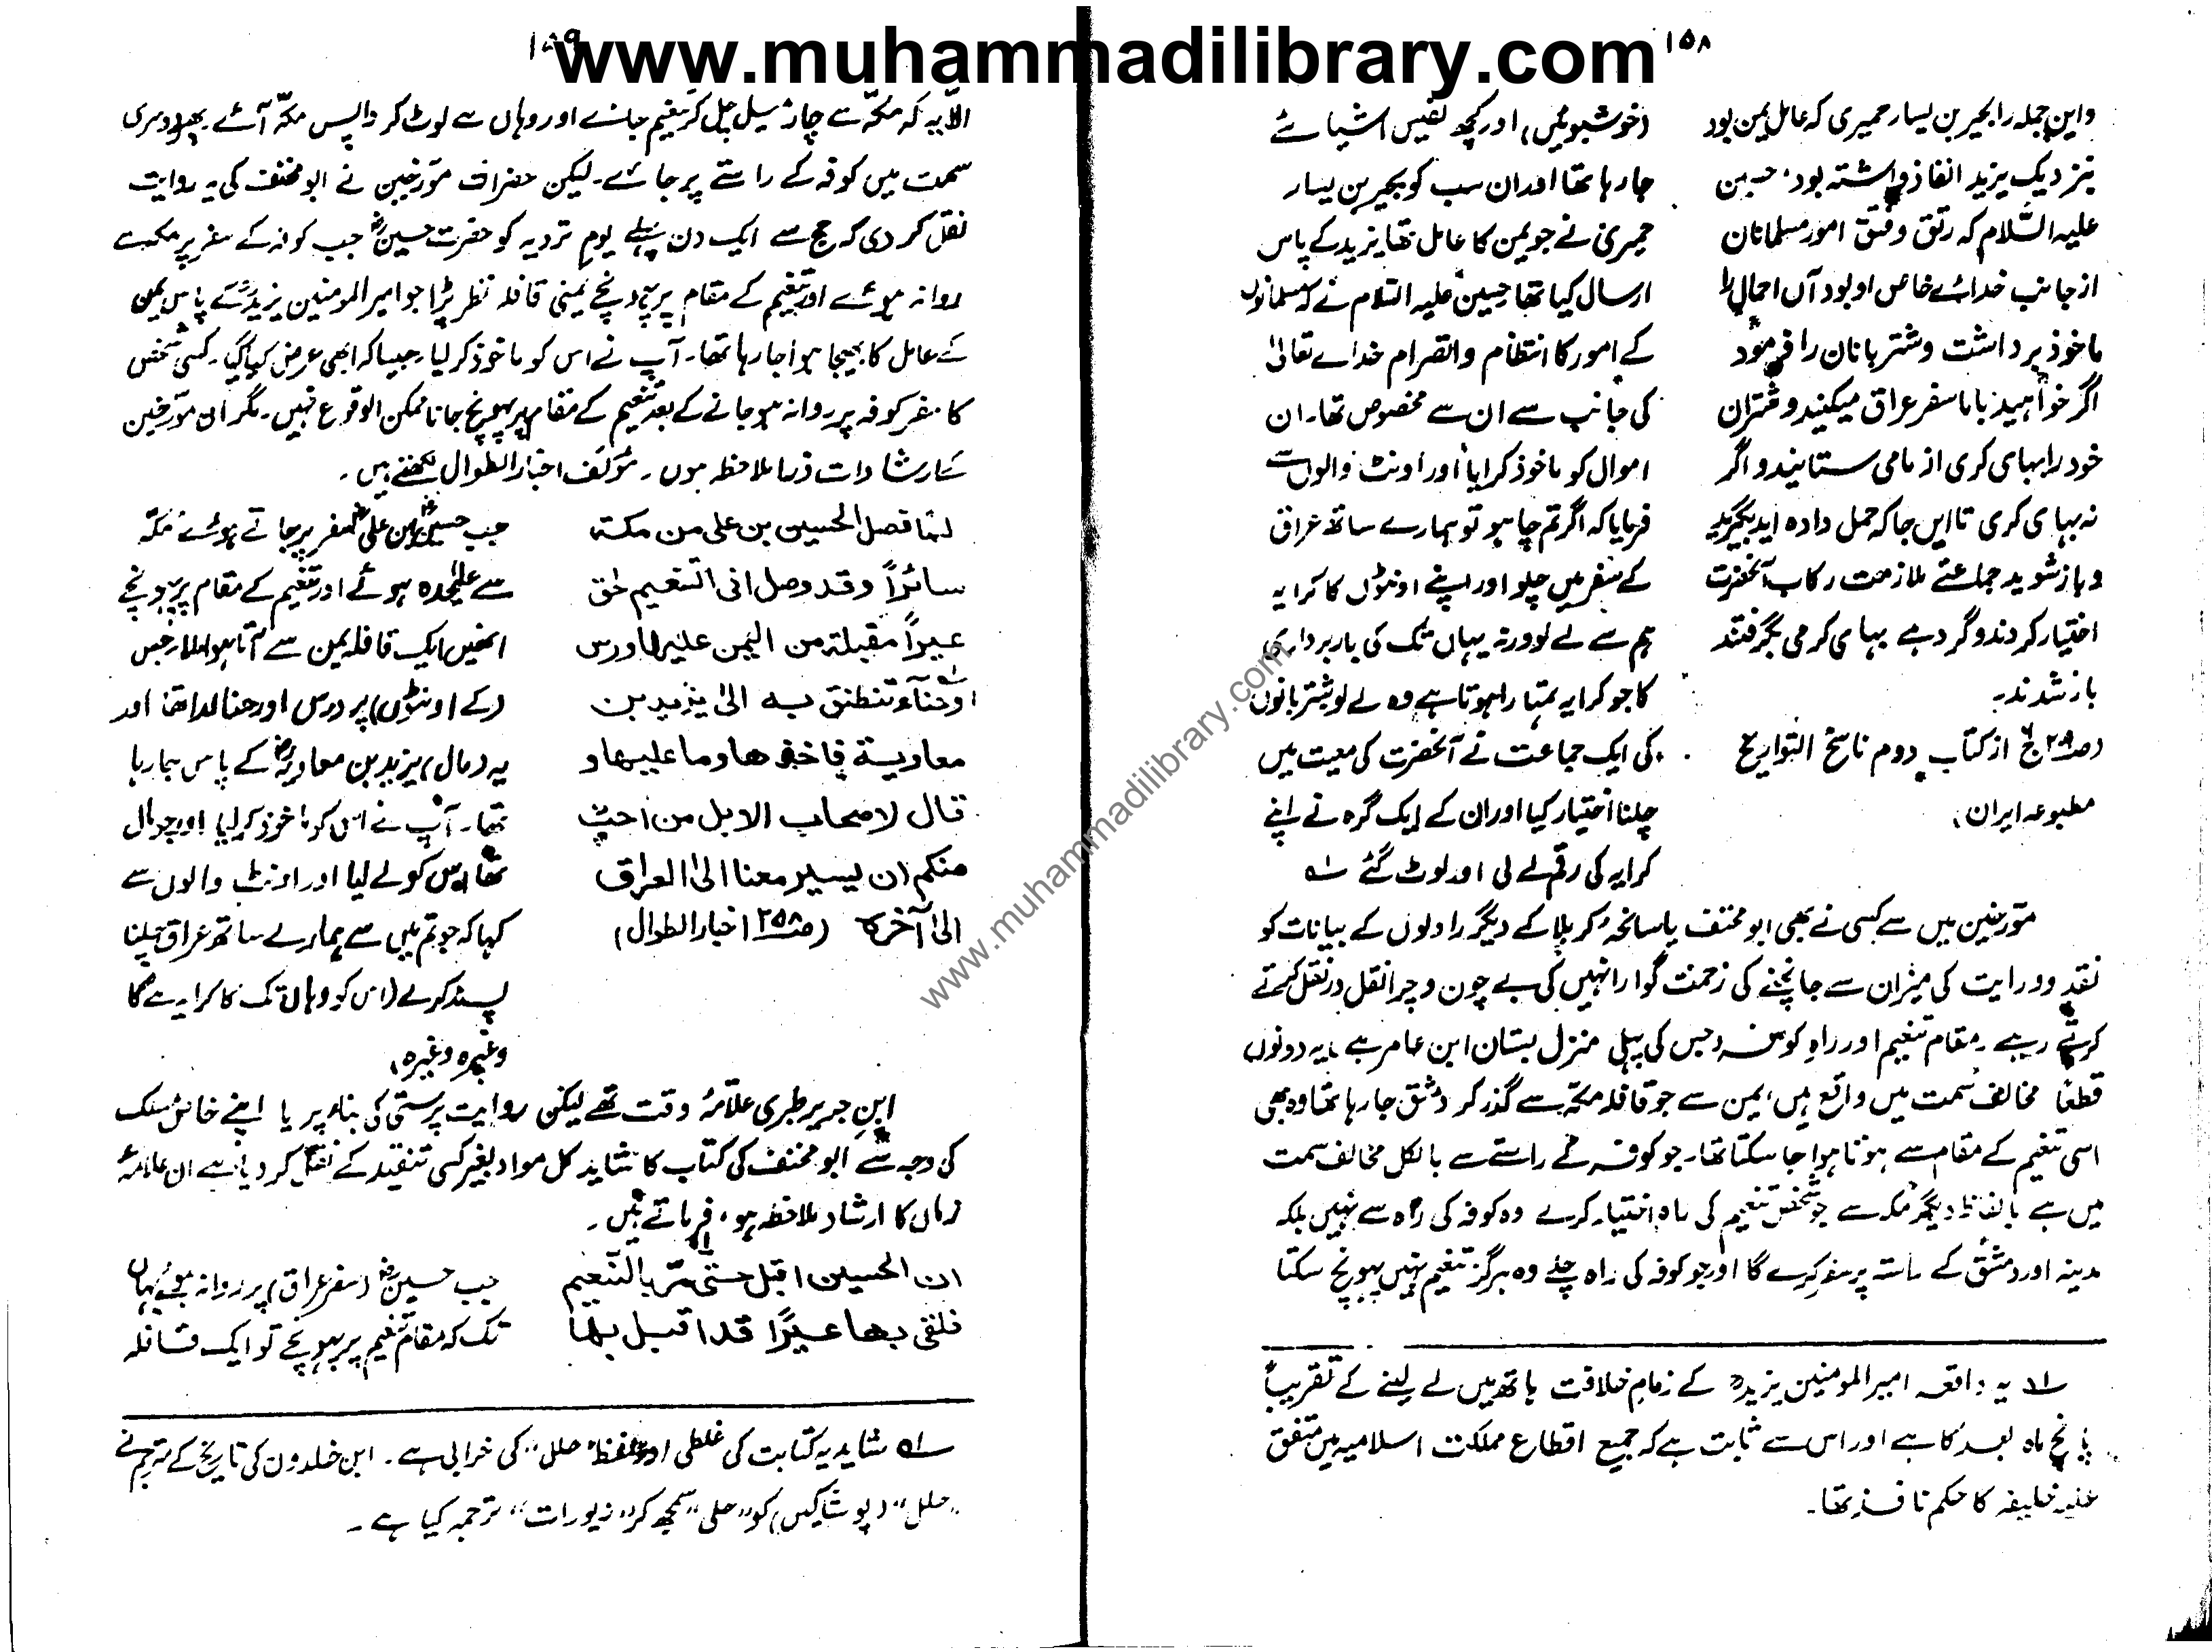 www.muhammadilibrary.com
۱۵۸
و این جمله را بحیر بن یسار حمیری که عامل یمن بود
بنزدیک یزید انفاذ داشته بود، حسین
علیه السّلام که رتق و فتق امور مسلمانان
از جانب خدائے خاص او بود آں احمال را
ماخوذ برداشت و شتربانان را فرمود
اگر خواہید باما سفر عراق میکنید و شتران
خود را بہای کری از مامی ستانید و اگر
نہ بہای کری تا ایں جا کہ حمل دادہ اید بگیرید
و باز شوید جماعتے ملازمت رکاب آنحضرت
اختیار کردند و گروہے بہای کرمی بگرفتند
باز شدند۔
(صـ۲۰۸ ج۶ از کتاب دوم ناسخ التواریخ
مطبوعہ ایران)
(خوشبوئیں) اور کچھ نفیس اشیائے
جا رہا تھا اور ان سب کو بحیر بن یسار
حمیری نے جو یمن کا عامل تھا یزید کے پاس
ارسال کیا تھا حسین علیہ السلام نے کہ مسلمانوں
کے امور کا انتظام و انصرام خدائے تعالیٰ
کی جانب سے ان سے مخصوص تھا۔ ان
اموال کو ماخوذ کرایا اور اونٹ والوں سے
فرمایا کہ اگر تم چاہو تو ہمارے ساتھ عراق
کے سفر میں چلو اور اپنے اونٹوں کا کرایہ
ہم سے لے لو ورنہ یہاں تک کی باربرداری
کا جو کرایہ تمہارا ہوتا ہے وہ لے لو شتربانوں
کی ایک جماعت نے آنحضرت کی معیت میں
چلنا اختیار کیا اور ان کے ایک گرہ نے اپنے
کرایہ کی رقم لے لی اور لوٹ گئے ۱ے
مؤرخین میں سے کسی نے بھی ابو مخنف یا سانحہ کربلا کے دیگر راویوں کے بیانات کو
نقد و درایت کی میزان سے جانچنے کی زحمت گوارا نہیں کی بے چون و چرا نقل در نقل کرتے
کرتے رہے۔ مقام تنعیم اور راہِ کوفہ جس کی پہلی منزل بستان ابن عامر ہے، یہ دونوں
قطعاً مخالف سمت میں واقع ہیں، یمن سے جو قافلہ مکہ سے گذر کر دمشق جا رہا تھا وہ بھی
اسی تنعیم کے مقام سے ہوتا ہوا جا سکتا تھا۔ جو کوفہ کے راستے سے بالکل مخالف سمت
میں ہے بالفاظ دیگر مکہ سے جو شخص تنعیم کی راہ اختیار کرے وہ کوفہ کی راہ سے نہیں بلکہ
مدینہ اور دمشق کے راستہ پر سفر کرے گا اور جو کوفہ کی راہ چلے وہ ہرگز تنعیم نہیں پہونچ سکتا
۱ے یہ واقعہ امیر المومنین یزیدؒ کے زمام خلافت ہاتھ میں لے لینے کے تقریباً
پانچ ماہ بعد کا ہے اور اس سے ثابت ہے کہ جمیع اقطاع مملکت اسلامیہ میں متفق
علیہ خلیفہ کا حکم نافذ تھا۔
۱۵۹
الّا یہ کہ مکہ سے چار میل چل کر تنعیم جائے اور وہاں سے لوٹ کر واپس مکہ آئے پھر دوسری
سمت میں کوفہ کے راستے پر جائے۔ لیکن حضرات مؤرخین نے ابو مخنف کی یہ روایت
نقل کر دی کہ حج سے ایک دن پہلے یوم ترویہ کو حضرت حسینؓ جب کوفہ کے سفر پر مکہ سے
روانہ ہوئے اور تنعیم کے مقام پر پہونچے یمنی قافلہ نظر پڑا جو امیر المومنین یزیدؒ کے پاس یمن
کے عامل کا بھیجا ہوا جا رہا تھا۔ آپ نے اس کو ماخوذ کر لیا۔ جیسا کہ ابھی عرض کیا گیا۔ کسی شخص
کا سفر کوفہ پر روانہ ہو جانے کے بعد تنعیم کے مقام پر پہونچ جانا ممکن الوقوع نہیں۔ مگر ان مؤرخین
کے ارشادات ذرا ملاحظہ ہوں۔ مؤلف اخبار الطوال لکھتے ہیں۔
لمّا فصل الحسین بن علی من مکة
سائراً وقد وصل الی التنعیم لحق
عیراً مقبلة من الیمن علیہا ورس
وحناء تنطلق بہ الیٰ یزید بن
معاویة فاخذھا وما علیہا و
قال لاصحاب الابل من احب
منکم ان یسیر معنا الیٰ العراق
الیٰ آخرہ (صـ۲۵۸ اخبار الطوال)
جب حسینؓ بن علیؓ سفر پر جاتے ہوئے مکہ
سے علیٰحدہ ہوئے اور تنعیم کے مقام پر پہونچے
انھیں ایک قافلہ یمن سے آتا ہوا ملا جس
(کے اونٹوں) پر ورس اور حنا لدا تھا اور
یہ (مال) یزید بن معاویہؓ کے پاس جا رہا
تھا۔ آپ نے اس کو ماخوذ کر لیا اور جو مال
تھا اس کو لے لیا اور اونٹ والوں سے
کہا کہ جو تم میں سے ہمارے ساتھ عراق چلنا
پسند کرے (اس کو وہاں تک کا کرایہ ملے گا
وغیرہ وغیرہ)
ابن جریر طبری علامۂ وقت تھے لیکن روایت پرستی کی بناء پر یا اپنے خاص مسلک
کی وجہ سے ابو مخنف کی کتاب کا شاید کل مواد بغیر کسی تنقید کے نقل کر دیا ہے ان علامۂ
زماں کا ارشاد ملاحظہ ہو، فرماتے ہیں۔
ان الحسین اقبل حتی مرّ بالتنعیم
فلقی بھا عیراً قد اقبل بہا
جب حسینؓ (سفر عراق) پر روانہ ہوئے یہاں
تک کہ مقام تنعیم پر پہونچے تو ایک قافلہ
۱ے شاید یہ کتابت کی غلطی اور لفظ "حلل" کی خرابی ہے۔ ابن خلدون کی تاریخ کے مترجم نے
"حلل" (پوشاکیں) کو "حلی" سمجھ کر "زیورات" ترجمہ کیا ہے۔
www.muhammadilibrary.com